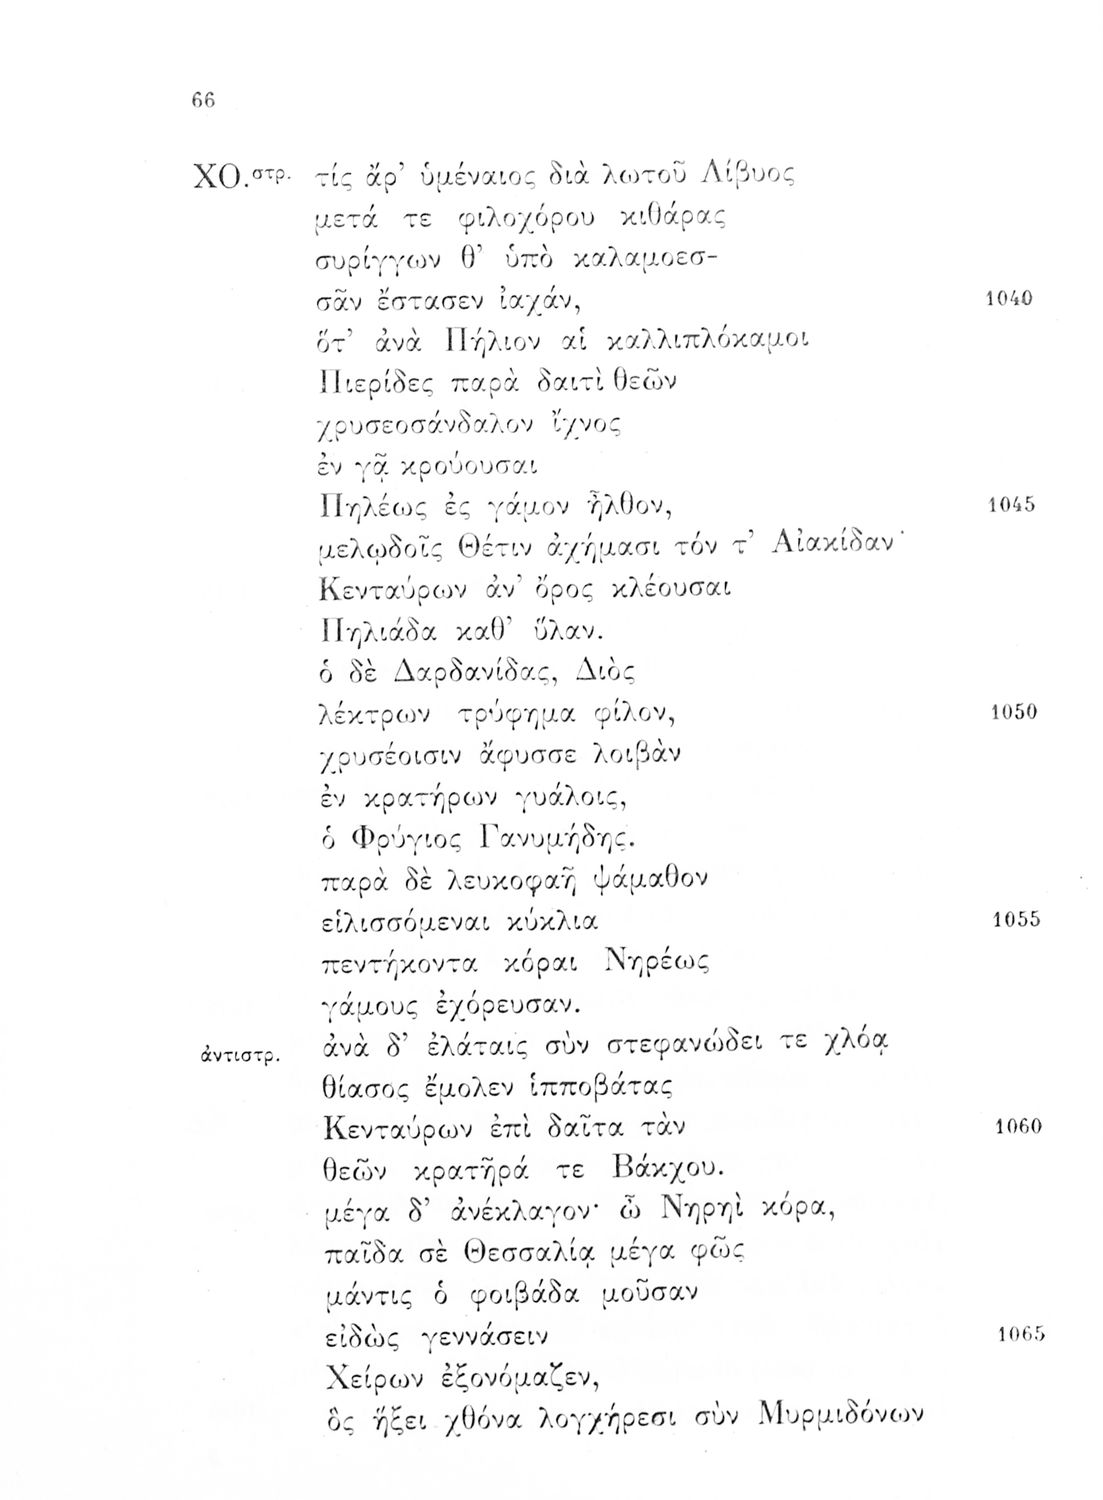 66
ΧΟ.στρ. τίς ἄρ’ ὑμέναιος διὰ λωτοῦ Λίβυος
μετά τε φιλοχόρου κιθάρας
συρίγγων θ’ ὑπὸ καλαμοεσ-
σᾶν ἔστασεν ἰαχάν, 1040
ὅτ’ ἀνὰ Πήλιον αἱ καλλιπλόκαμοι
Πιερίδες παρὰ δαιτὶ θεῶν
χρυσεοσάνδαλον ἴχνος
ἐν γᾷ κρούουσαι
Πηλέως ἐς γάμον ἦλθον, 1045
μελῳδοῖς Θέτιν ἀχήμασι τόν τ’ Αἰακίδαν·
Κενταύρων ἀν’ ὄρος κλέουσαι
Πηλιάδα καθ’ ὕλαν.
ὁ δὲ Δαρδανίδας, Διὸς
λέκτρων τρύφημα φίλον, 1050
χρυσέοισιν ἄφυσσε λοιβὰν
ἐν κρατήρων γυάλοις,
ὁ Φρύγιος Γανυμήδης.
παρὰ δὲ λευκοφαῆ ψάμαθον
εἱλισσόμεναι κύκλια 1055
πεντήκοντα κόραι Νηρέως
γάμους ἐχόρευσαν.
ἀντιστρ. ἀνὰ δ’ ἐλάταις σὺν στεφανώδει τε χλόᾳ
θίασος ἔμολεν ἱπποβάτας
Κενταύρων ἐπὶ δαῖτα τὰν 1060
θεῶν κρατῆρά τε Βάκχου.
μέγα δ’ ἀνέκλαγον· ὦ Νηρηὶ κόρα,
παῖδα σὲ Θεσσαλίᾳ μέγα φῶς
μάντις ὁ φοιβάδα μοῦσαν
εἰδὼς γεννάσειν 1065
Χείρων ἐξονόμαζεν,
ὃς ἥξει χθόνα λογχήρεσι σὺν Μυρμιδόνων